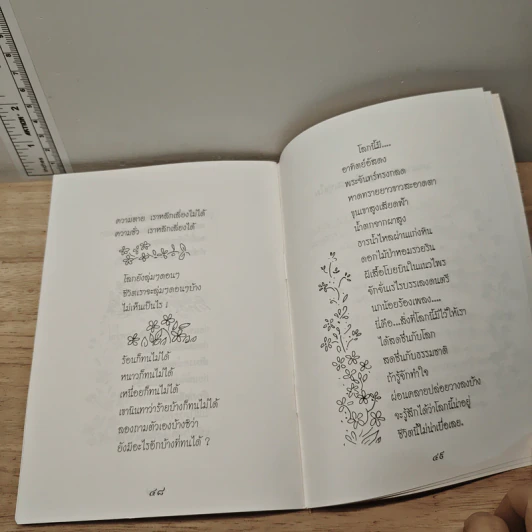 ความตาย เราหลีกเลี่ยงไม่ได้
ความชั่ว เราหลีกเลี่ยงได้
โลกยังลุ่มๆดอนๆ
ชีวิตเราจะลุ่มๆดอนๆบ้าง
ไม่เห็นเป็นไร !
ร้อนก็ทนไม่ได้
หนาวก็ทนไม่ได้
เหนื่อยก็ทนไม่ได้
เขานินทาว่าร้ายบ้างก็ทนไม่ได้
ลองถามตัวเองบ้างซิว่า
ยังมีอะไรอีกบ้างที่ทนได้ ?
๔๘
โลกนี้มี....
อาทิตย์อัสดง
พระจันทร์ทรงกลด
หาดทรายยาวขาวสะอาดตา
ขุนเขาสูงเสียดฟ้า
น้ำตกจากผาสูง
ธารน้ำไหลผ่านเก่งหิน
ดอกไม้ป่าหอมรวยริน
ผีเสื้อโบยบินในแนวไพร
จักจั่นเรไรบรรเลงดนตรี
นกน้อยร้องเพลง....
นี่คือ...สิ่งที่โลกนี้มีไว้ให้เรา
ได้สดชื่นกับโลก
สดชื่นกับธรรมชาติ
ถ้ารู้จักทำใจ
ผ่อนคลายปล่อยวางลงบ้าง
จะรู้สึกได้ว่าโลกนี้น่าอยู่
ชีวิตนี้ไม่น่าเบื่อเลย.
๔๙
1
2